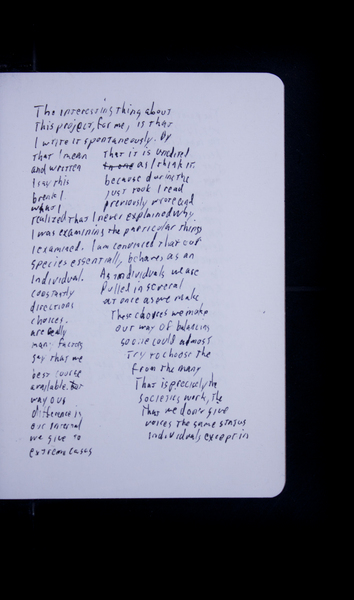 The interesting thing about
this project, for me, is that
I write it spontaneously. By
that I mean that it is unedited
and written as I think it.
I say this because during the
break I just took I read
what I previously wrote and
realized that I never explained why
I was examining the particular things
I examined. I am convinced that our
species essentially behaves as an
individual. As individuals we are
constantly pulled in several
directions at once as we make
choices. These choices we make
are really our way of balancing
many factors so one could almost
say that we try to choose the
best course from the many
available. That is precisely
way our societies work, the
difference is that we don't give
our internal voices the same status
we give to individuals except in
extreme cases